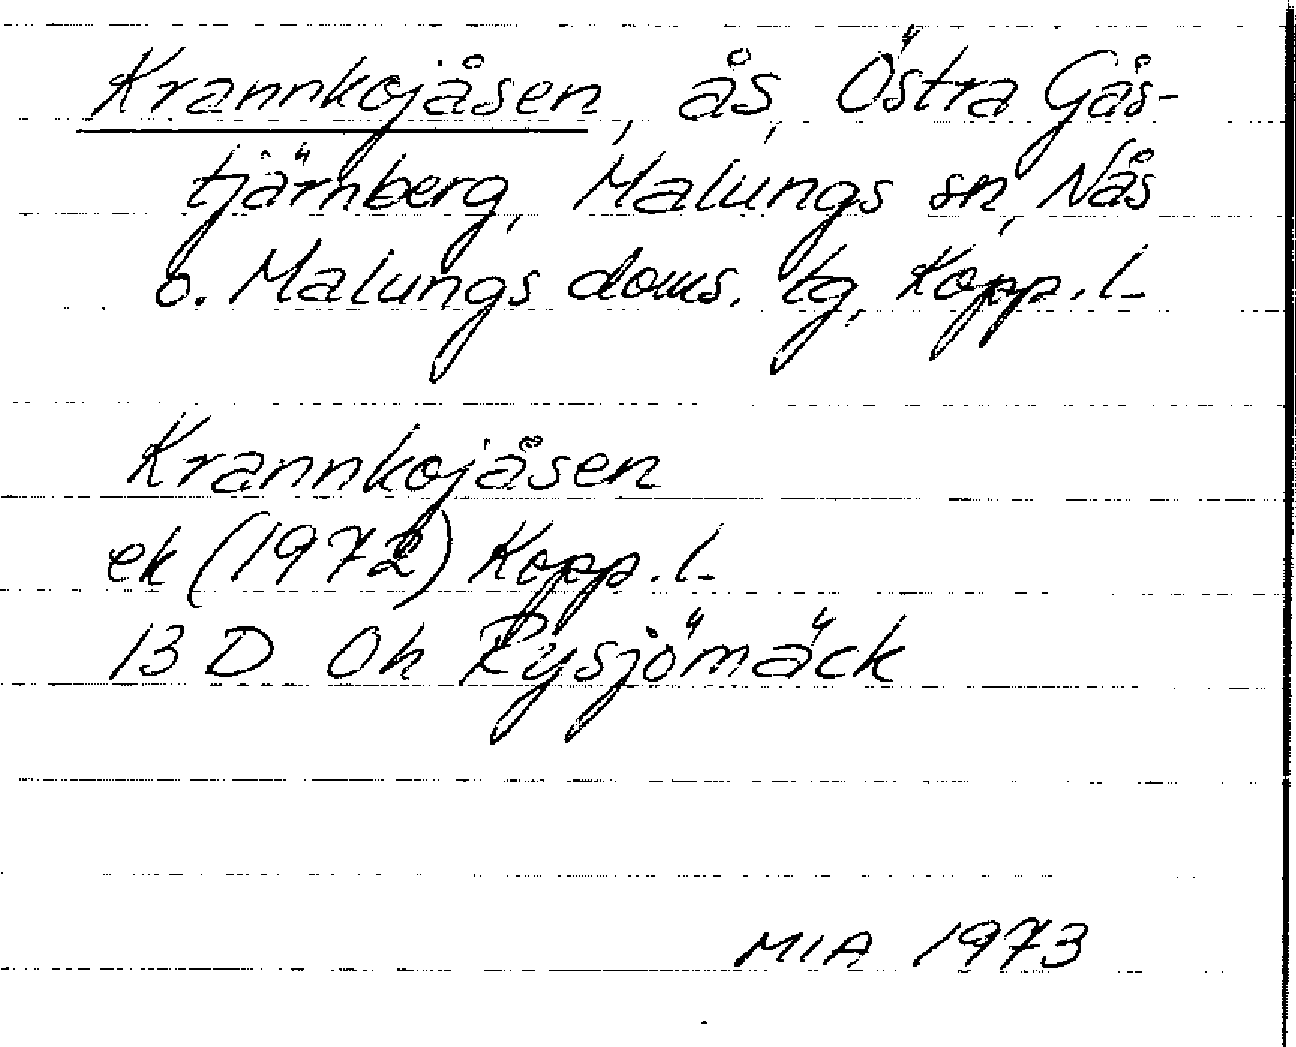 Krannkojåsen, ås, Östra Gås-
tjärnberg, Malungs sn, Nås
o. Malungs doms. tg, Kopp. l.
Krannkojåsen
ek (1972) Kopp. l.
13 D 0h Rysjömäck
MIA 1973